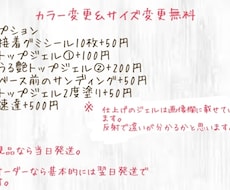 カラー変更&サイズ変更無料
プション
接着グミシール10枚+50円
トップジェル①+100円
うる艶トップジェル②+200円
ベース前のサンディング+50円
トップジェル2度塗り+50円
速達+500円
※ 仕上げのジェルは画像欄に載せてい
ます。
反射で違いが分かるかと思います。
良品なら当日発送。
ーダーなら基本的には翌日発送で
す。